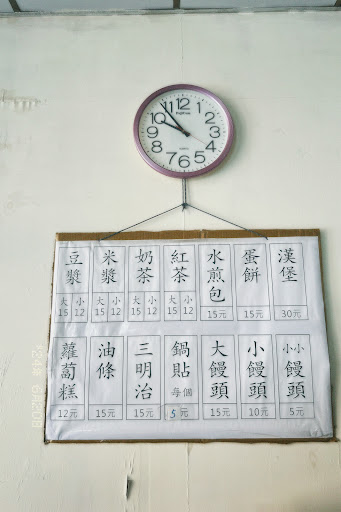 12
1
2
3
4
5
6
7
8
9
10
11
漢堡
30元
蛋餅
15元
水煎包
15元
紅茶
大15
小12
奶茶
大15
小12
米漿
大15
小12
豆漿
大15
小12
小小饅頭
5元
小饅頭
10元
大饅頭
15元
鍋貼
每個
5元
三明治
15元
油條
15元
蘿蔔糕
12元